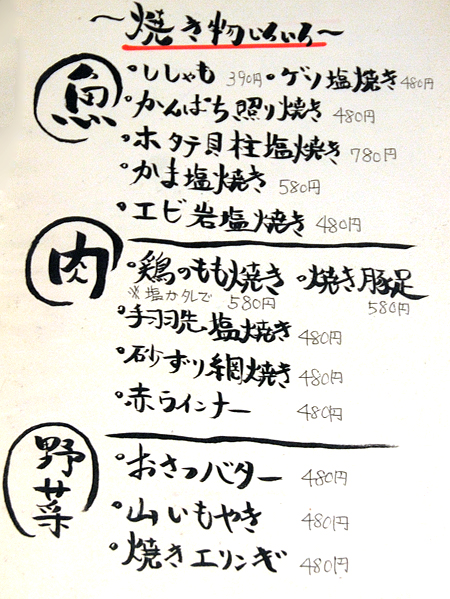 ～焼き物いろいろ～
魚
・ししゃも 390円 ・ゲソ塩焼き 480円
・かんぱち照り焼き 480円
・ホタテ貝柱塩焼き 780円
・かま塩焼き 580円
・エビ岩塩焼き 480円
肉
・鶏のもも焼き ・焼き豚足
※塩かタレで 580円 580円
・手羽先塩焼き 480円
・砂ずり網焼き 480円
・赤ウインナー 480円
野菜
・おさつバター 480円
・山いもやき 480円
・焼きエリンギ 480円